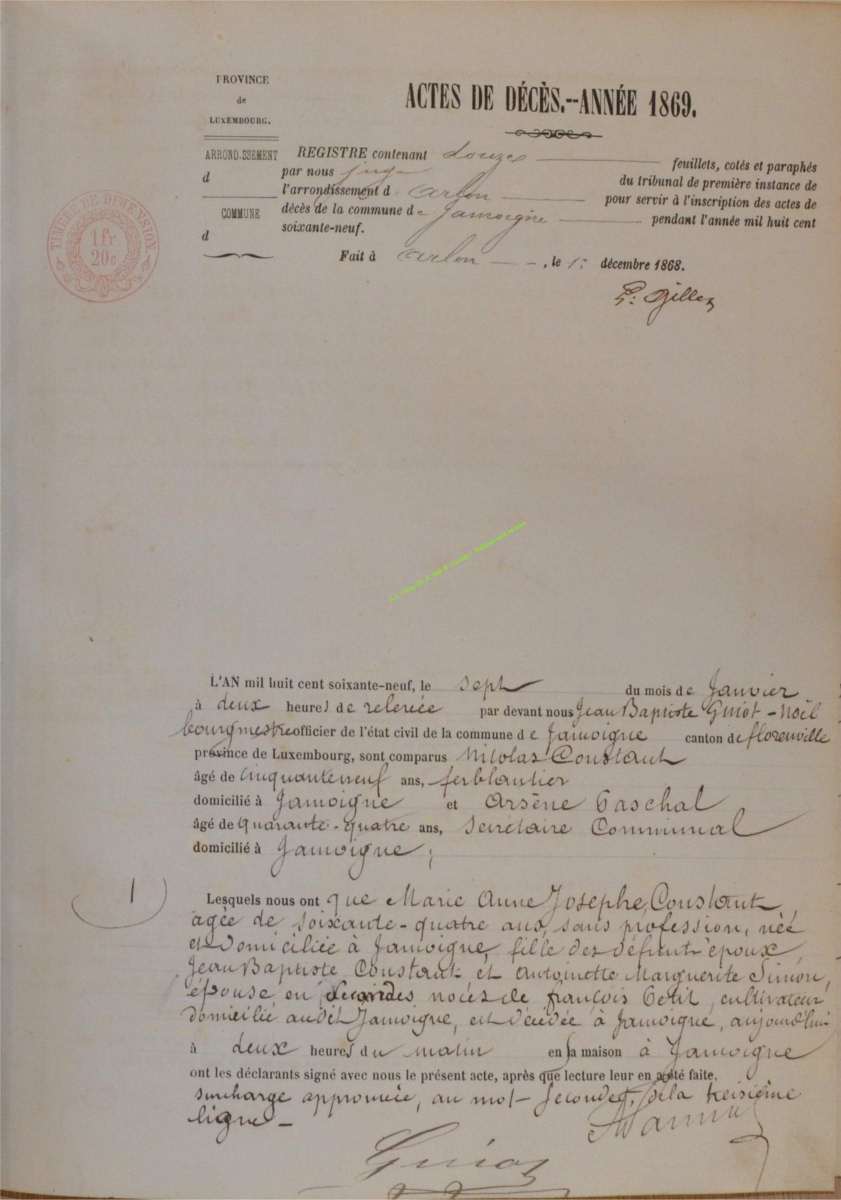 PROVINCE
de
LUXEMBOURG.
ARRONDISSEMENT
d
COMMUNE
d
TIMBRE DE DIMENSION
1 fr
20c
ACTES DE DÉCÈS.--ANNÉE 1869.
REGISTRE contenant douze feuillets, cotés et paraphés
par nous juge du tribunal de première instance de
l'arrondissement d'Arlon pour servir à l'inscription des actes de
décès de la commune de Jamoigne pendant l'année mil huit cent
soixante-neuf.
Fait à Arlon, le 1er décembre 1868.
L'AN mil huit cent soixante-neuf, le sept du mois de Janvier
à deux heures de relevée par devant nous Jean Baptiste Guiot-Noël
bourgmestre officier de l'état civil de la commune de Jamoigne canton de florenville
province de Luxembourg, sont comparus Nicolas Constant
âgé de Cinquante neuf ans, ferblantier
domicilié à Jamoigne et Arsène Paschal
âgé de quarante-quatre ans, Secrétaire Communal
domicilié à Jamoigne;
1
Lesquels nous ont que Marie Anne Josephe Constant,
agée de soixante-quatre ans, sans profession, née
et domiciliée à Jamoigne, fille des défunt époux,
Jean Baptiste Constant et Antoinette Marguerite Simon,
épouse en secondes noces de françois Petit, cultivateur
domicilié audit Jamoigne, est décédée à Jamoigne, aujourd'hui
à deux heures du matin en sa maison à Jamoigne
ont les déclarants signé avec nous le présent acte, après que lecture leur en a été faite.
surcharge approuvée, au mot secondes, de la treisième
ligne-